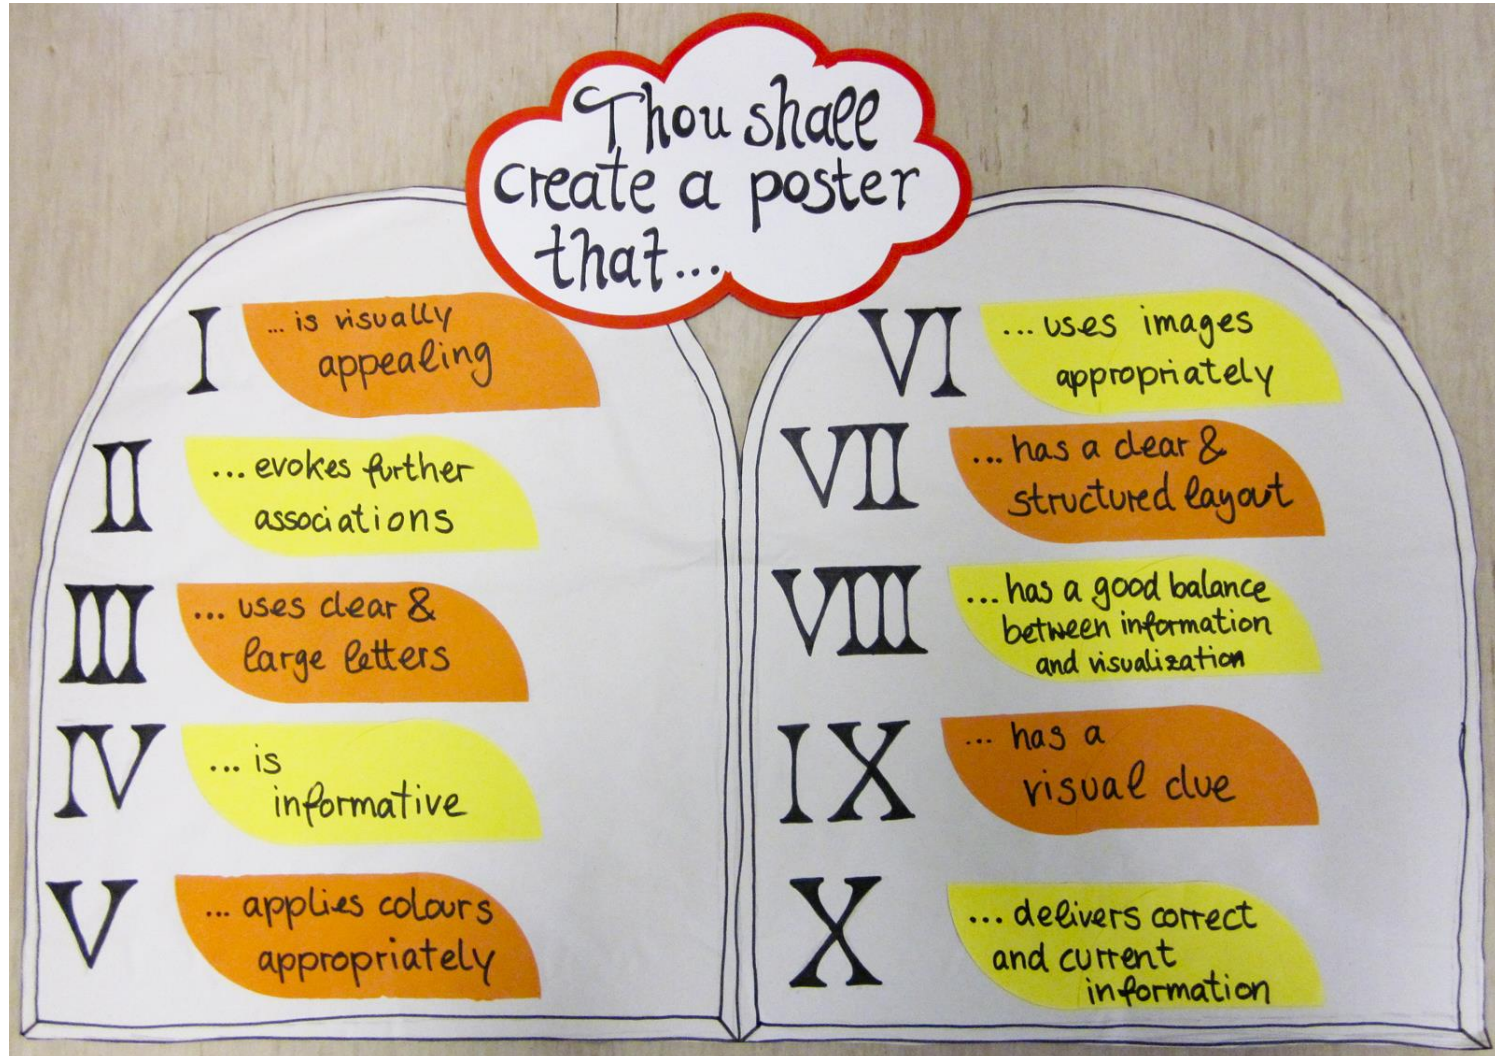 Thou shall
create a poster
that...
I
... is visually
appealing
II
... evokes further
associations
III
... uses clear &
large letters
IV
... is
informative
V
... applies colours
appropriately
VI
... uses images
appropriately
VII
... has a clear &
structured layout
VIII
... has a good balance
between information
and visualization
IX
... has a
visual clue
X
... delivers correct
and current
information